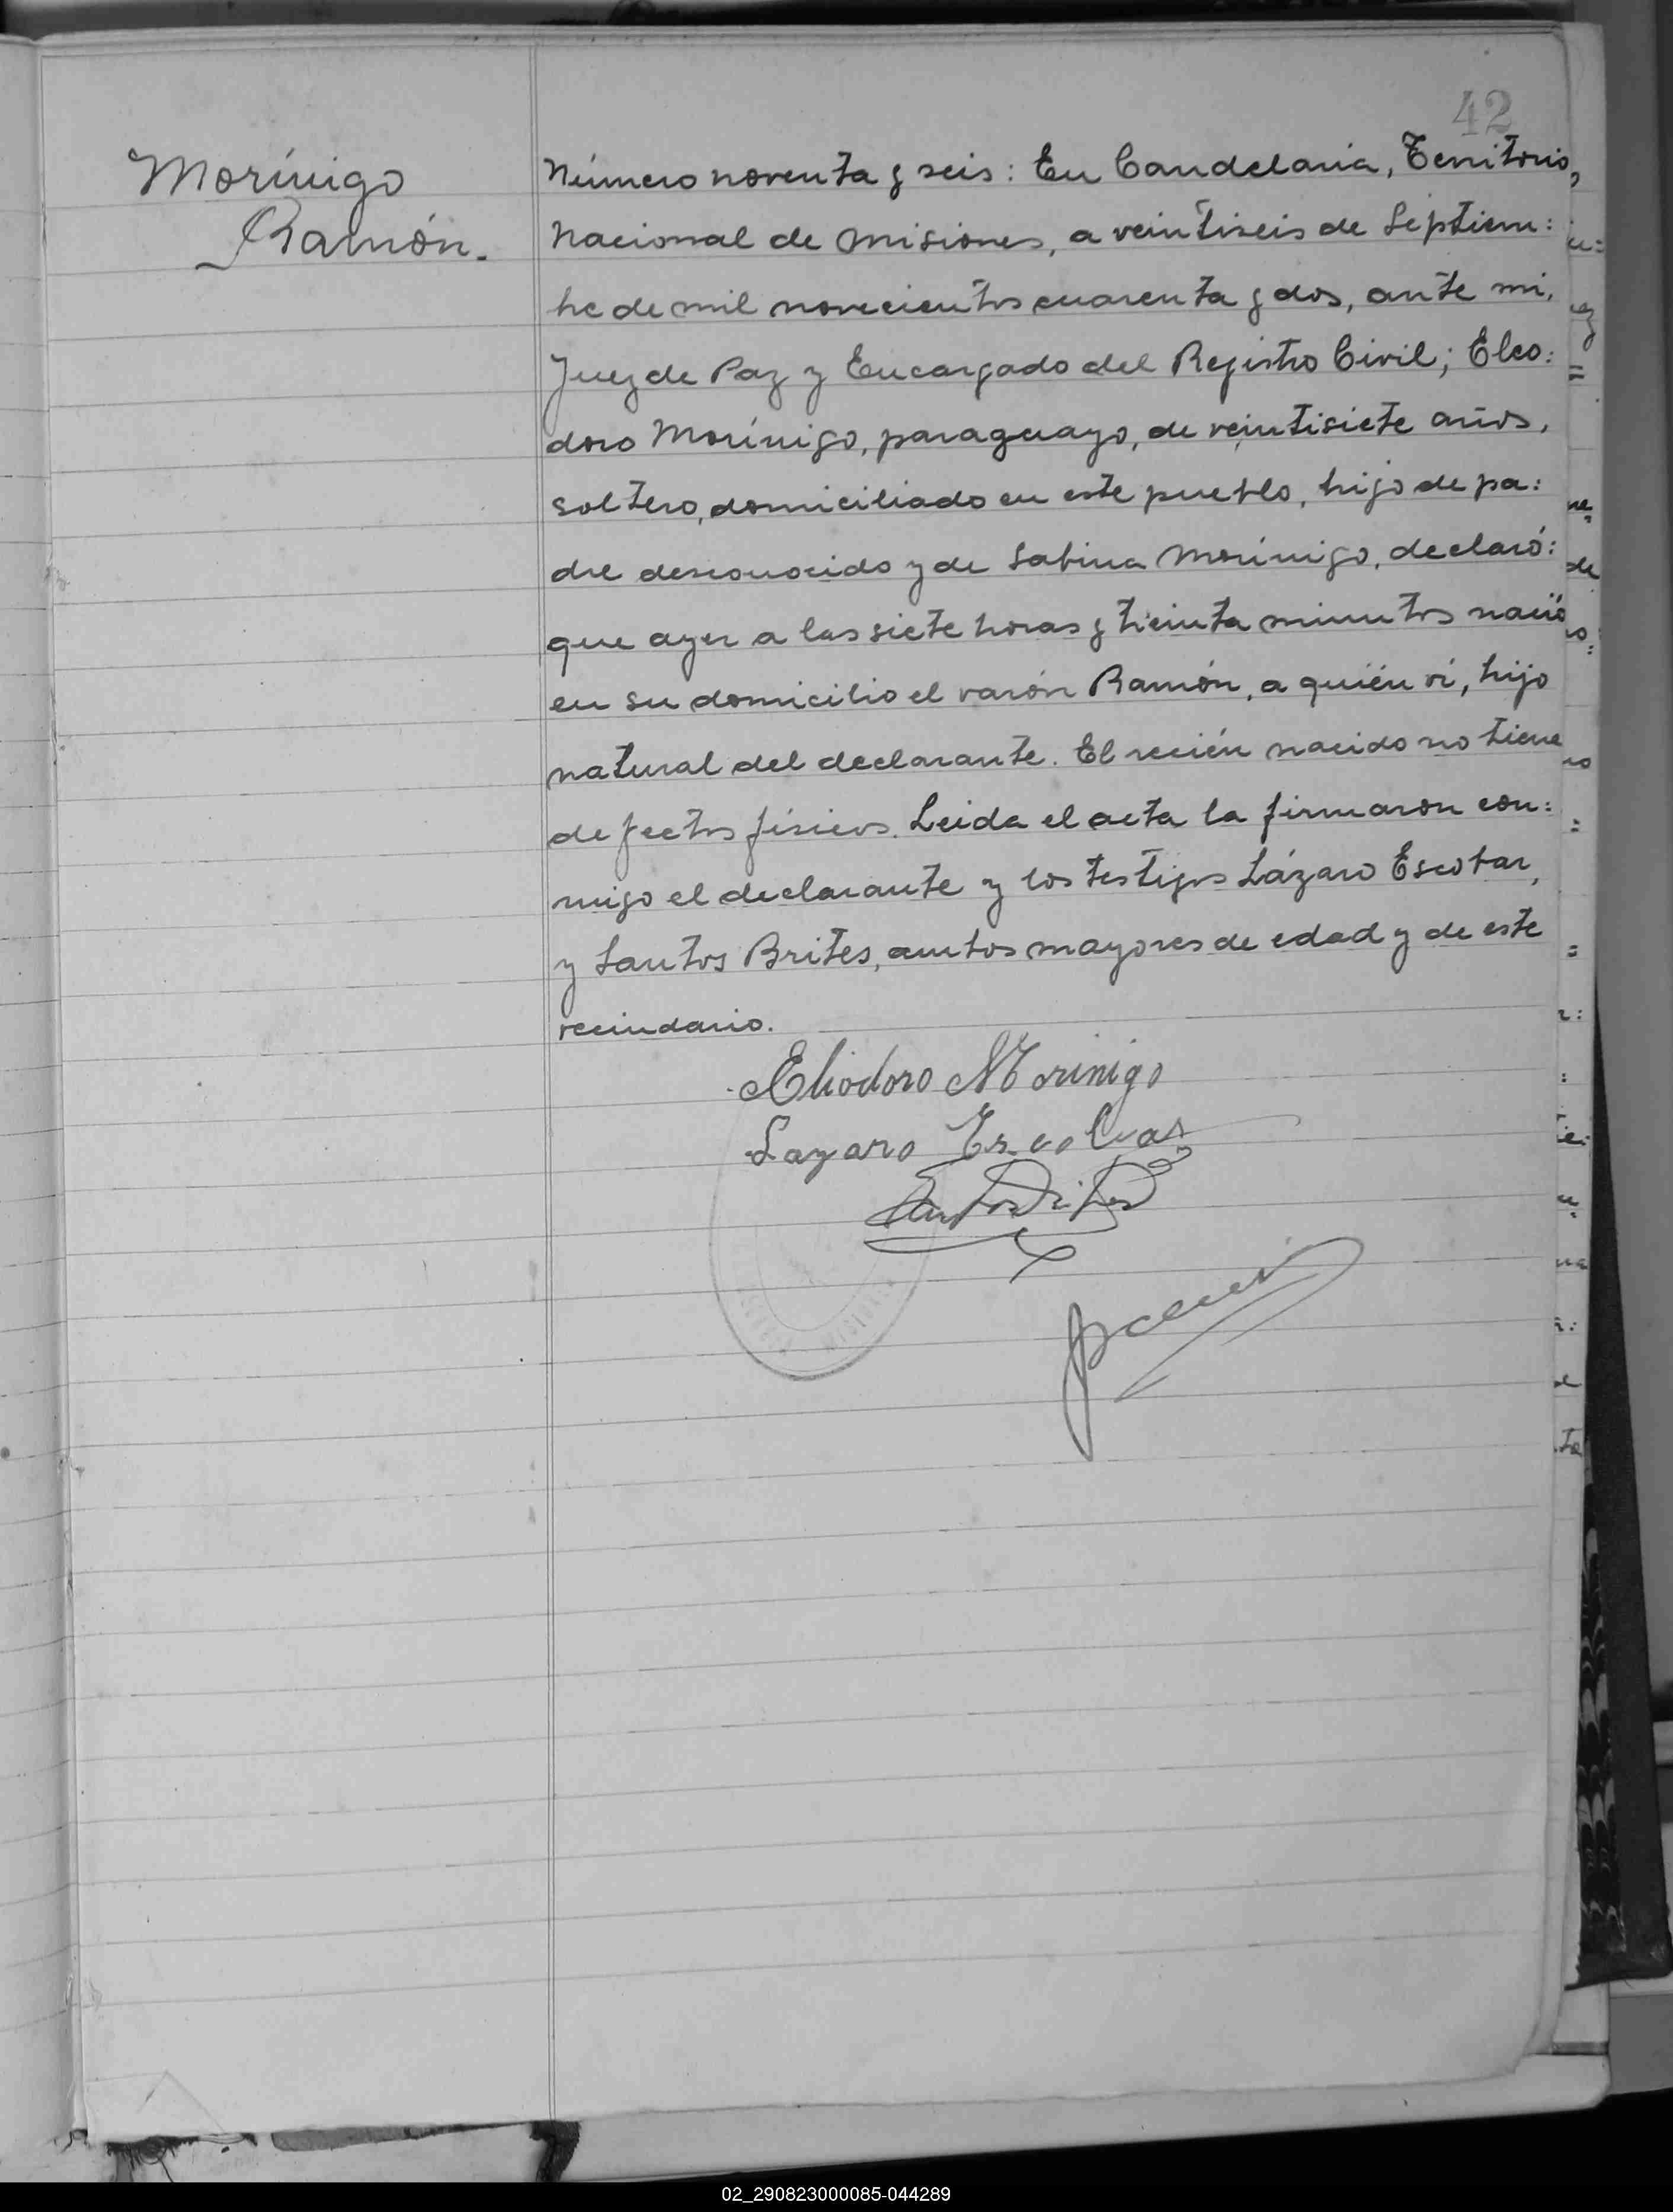 42
Morínigo
Ramón.
Número noventa y seis: En Candelaria, Territorio,
Nacional de Misiones, a veintiseis de Septiem:
bre de mil novecientos cuarenta y dos, ante mi,
Juez de Paz y Encargado del Registro Civil; Eleo:
doro Morínigo, paraguayo, de veintisiete años,
soltero, domiciliado en este pueblo, hijo de pa:
dre desconocido y de Sabina Morínigo, declaró:
que ayer a las siete horas y treinta minutos nació
en su domicilio el varón Ramón, a quién ví, hijo
natural del declarante. El recién nacido no tiene
defectos físicos. Leida el acta la firmaron con:
migo el declarante y los testigos Lázaro Escobar,
y Santos Brites, ambos mayores de edad y de este
vecindario.
Eliodoro Morinigo
Lazaro Escobar
Santos Brites
02_290823000085-044289